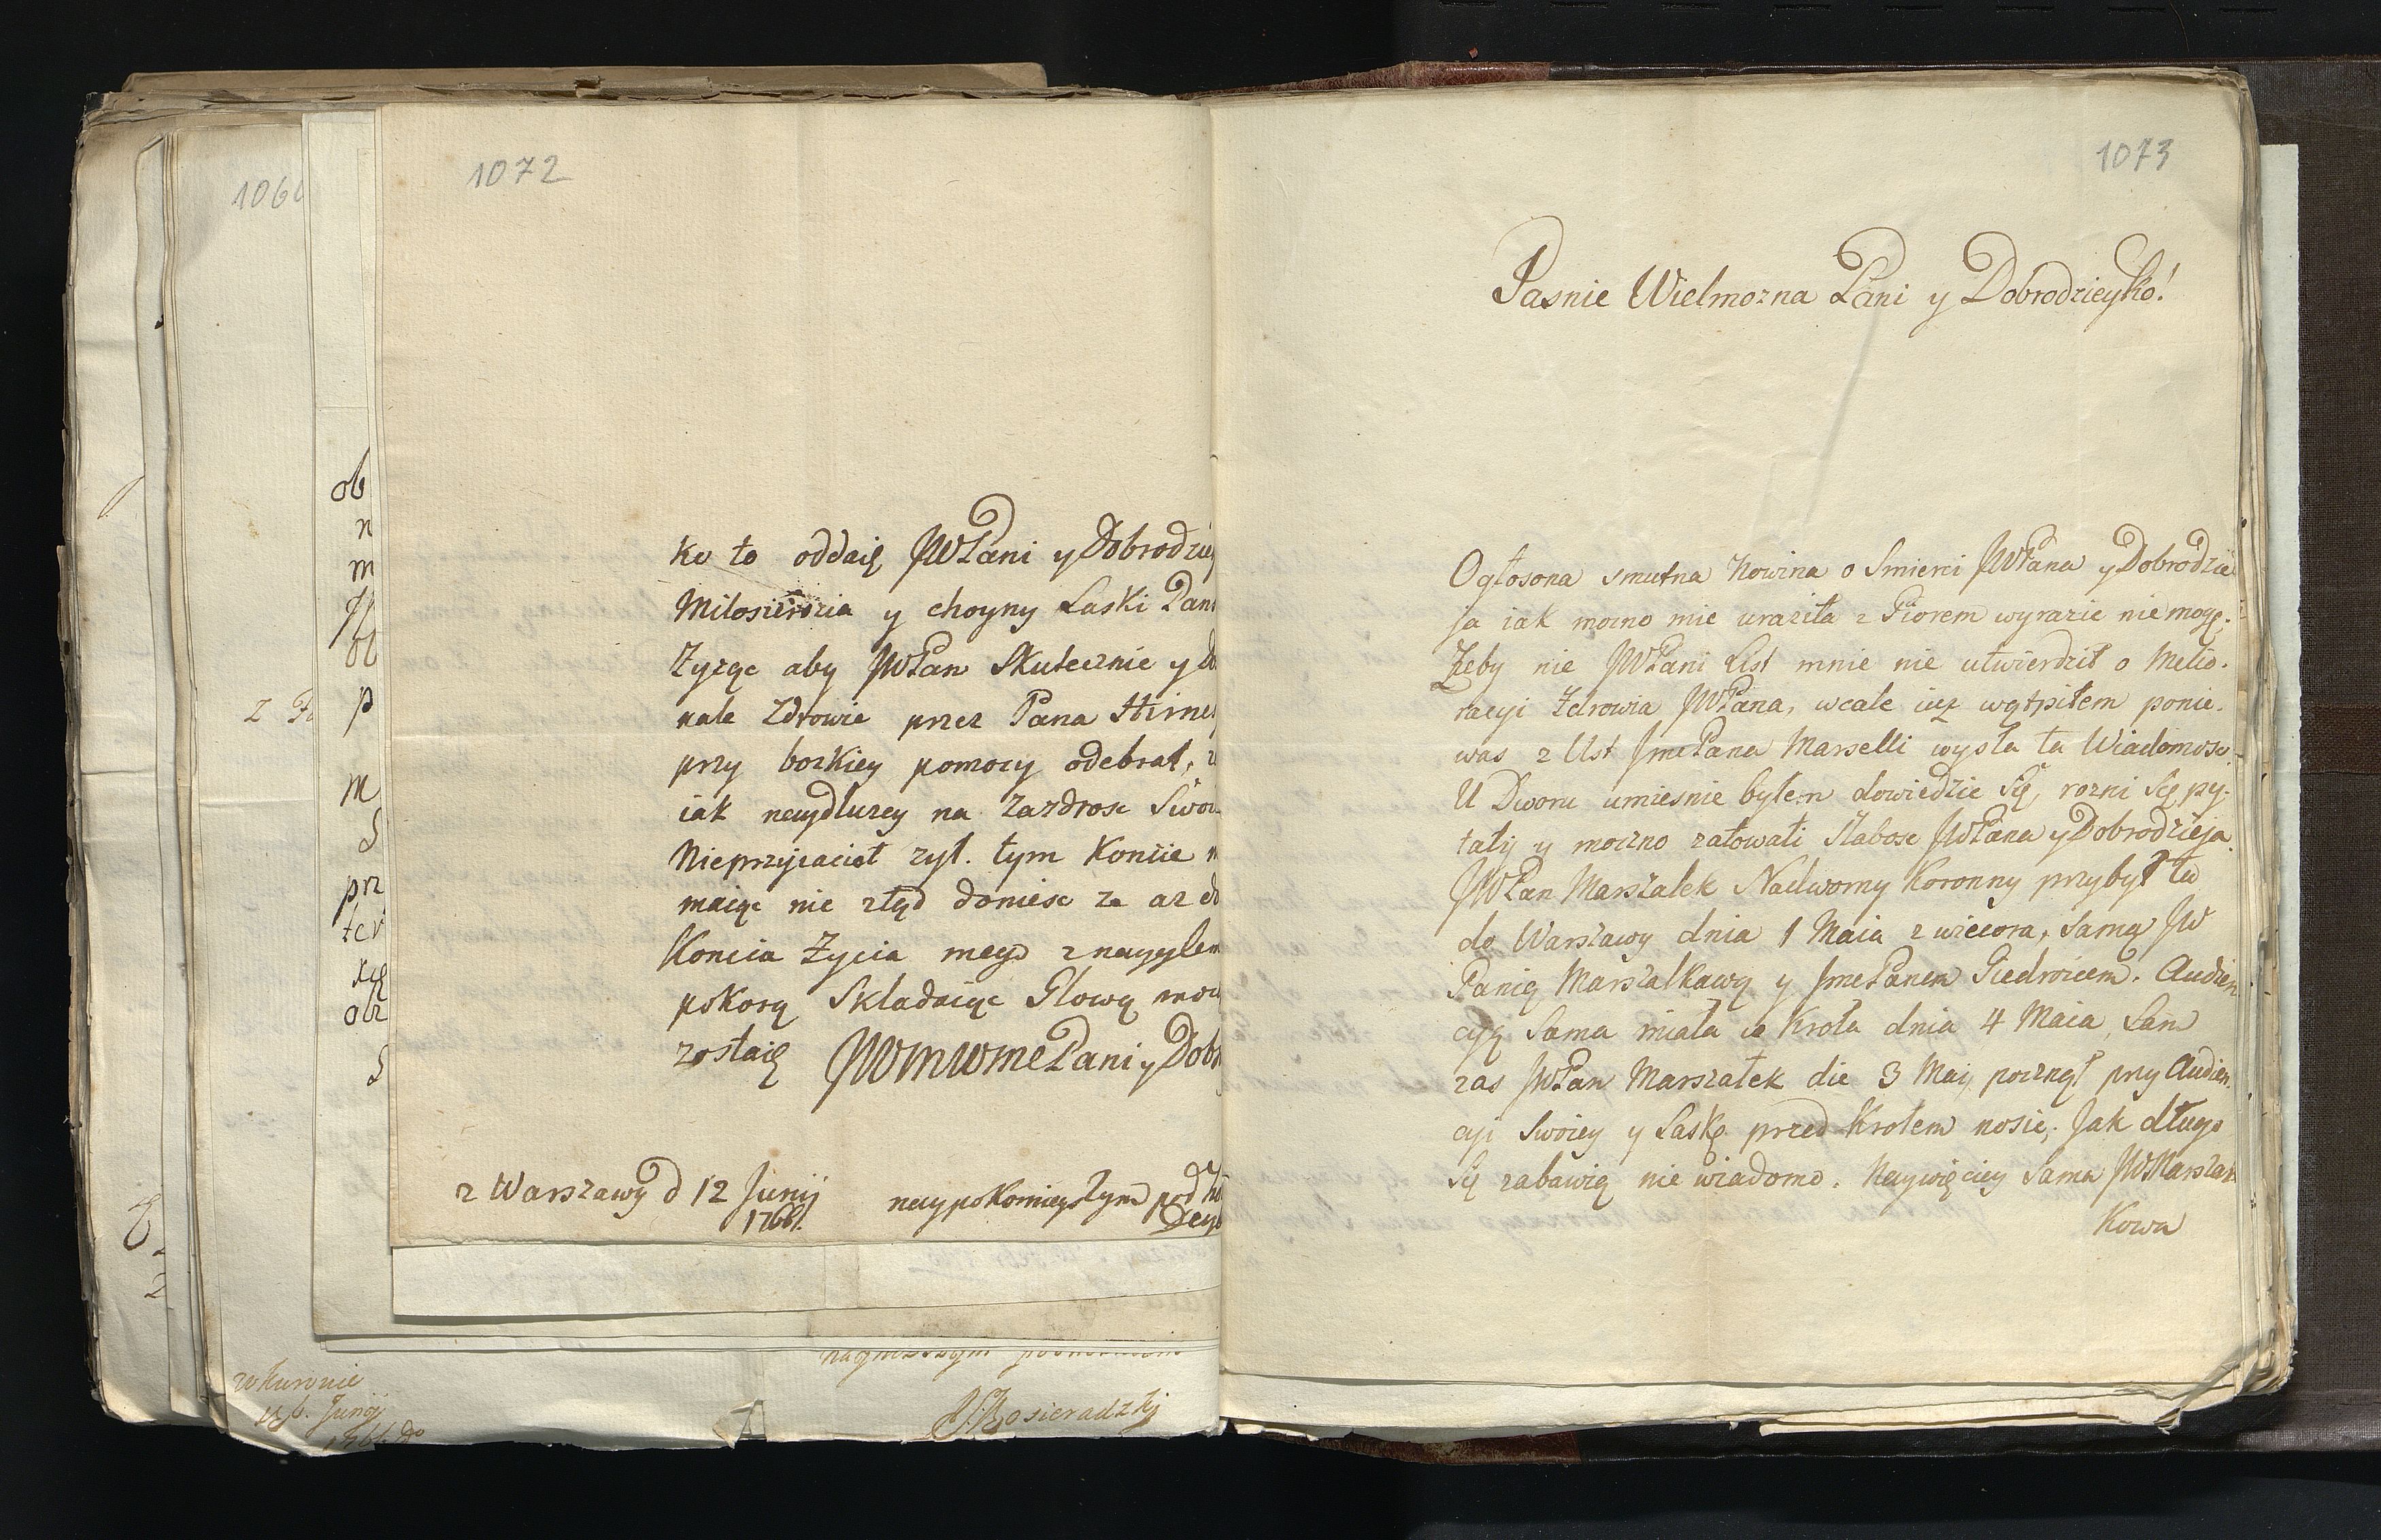 1072
ko to oddaię JWPani y Dobrodziey
Milosierdzia y choyny Laski Pans
Zyząc aby JWPan Skutecznie y do
nale Zdrowie przez Pana Hirne
przy bozkiey pomocy odebrał,
iak naydluzey na Zazdrosc Swoi
Nieprzyiacioł zył. tym Koncie
maiąc nie ztąd doniesc Za az do
Konca Zycia mego z naygłem
pokorą Skladaiąc Glowę moi
zostaię JWMWMPani y Dobr
z Warszawy d 12 Junij
1766.
naypokornieyszym pod
1073
Jasnie Wielmozna Pani y Dobrodzieyko!
Ogłosona smutna Nowina o Smierci JWPana y Dobrodzie
ja iak mocno mie uraziła z Piorem wyrazic nie mogę.
Zeby nie JWPani List mnie nie utwierdził o Melio-
racyi Zdrowia JWPana, wcale iuz wątpiłem ponie-
was z Ust JmcPana Marselli wysła ta Wiadomosc.
U Dworu umiesnie byłem dowiedzic Się, rozni Się py-
taly y moczno załowali Słabosc JWPana y Dobrodzieja
JWPan Marszalek Nadworny Koronny przybył tu
do Warszawy dnia 1 Maia z wieczora, Samą JW
Panią Marszalkawą y JmcPanem Giedroicem. Audien
cyą Sama miała u Krola dnia 4 Maia, Sam
zas JWPan Marszałek die 3 Maij poczneł przy Audien-
cyi Swoiey y Laskę przed Krolem nosic, Jak długo
Się zabawią nie wiadomo. Naywięciey Sama JWMarszał
Kowa
1060
ob
n
m
p
m
prz
ter
Kosieradzkj
Junij